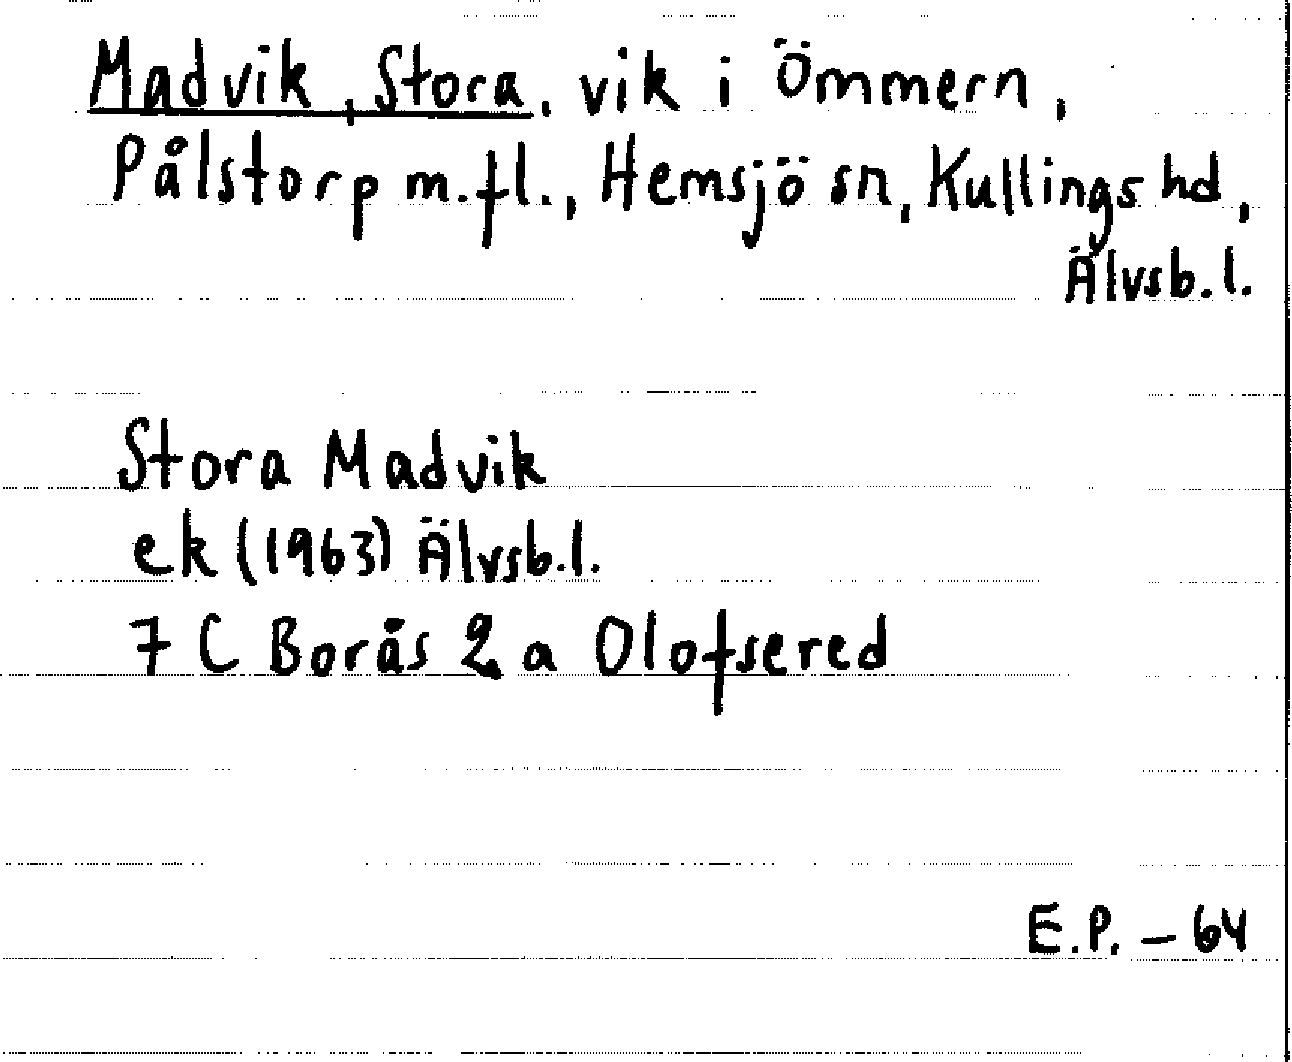 Madvik, Stora, vik i Ömmern,
Pålstorp m.fl., Hemsjö sn, Kullings hd,
Älvsb.l.
Stora Madvik
ek (1963) Älvsb.l.
7 C Borås 2 a Olofsered
E.P. - 64